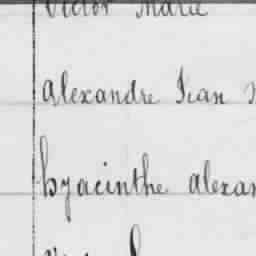 Victor Marie
Alexandre Jean
hyacinthe alexan